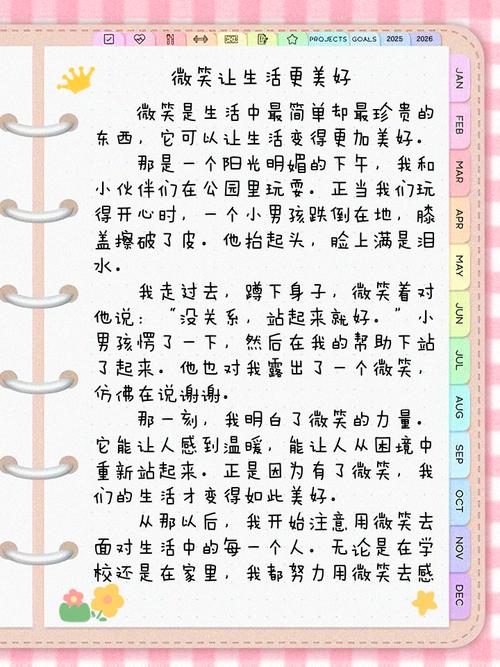 PROJECTS
GOALS
2025
2026
微笑让生活更美好
微笑是生活中最简单却最珍贵的
东西，它可以让生活变得更加美好。
那是一个阳光明媚的下午，我和
小伙伴们在公园里玩耍。正当我们玩
得开心时，一个小男孩跌倒在地，膝
盖擦破了皮。他抬起头，脸上满是泪
水。
我走过去，蹲下身子，微笑着对
他说：“没关系，站起来就好。”小
男孩愣了一下，然后在我的帮助下站
了起来。他也对我露出了一个微笑，
仿佛在说谢谢。
那一刻，我明白了微笑的力量。
它能让人感到温暖，能让人从困境中
重新站起来。正是因为有了微笑，我
们的生活才变得如此美好。
从那以后，我开始注意用微笑去
面对生活中的每一个人。无论是在学
校还是在家里，我都努力用微笑去感
JAN
FEB
MAR
APR
MAY
JUN
JUL
AUG
SEP
OCT
NOV
DEC